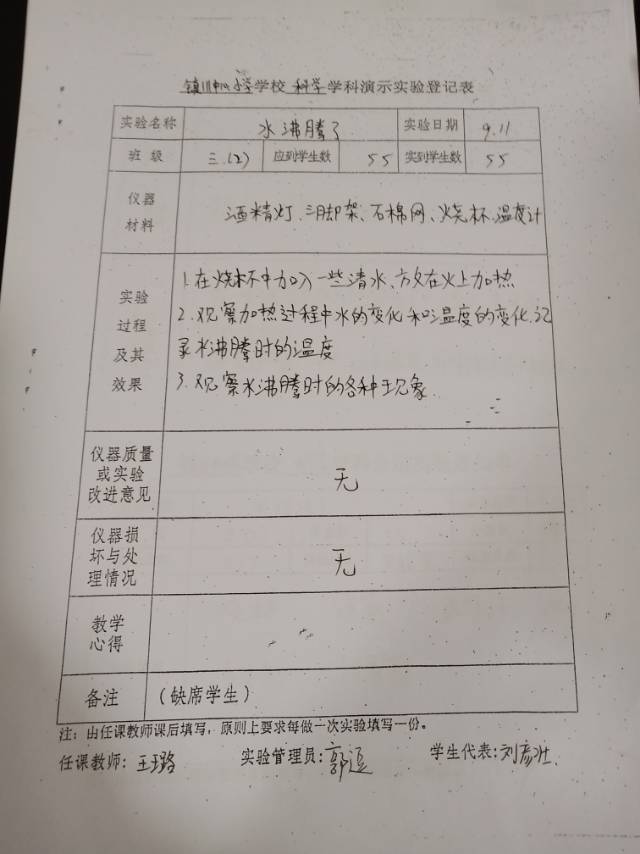 镇川中心小学学校 科学学科演示实验登记表
实验名称 水沸腾了 实验日期 9.11
班 级 三.(2) 应到学生数 55 实到学生数 55
仪器
材料
酒精灯、三脚架、石棉网、烧杯、温度计
实验
过程
及其
效果
1.在烧杯中加入一些清水、放在火上加热
2.观察加热过程中水的变化和温度的变化、记
录水沸腾时的温度
3.观察水沸腾时的各种现象
仪器质量
或实验
改进意见
无
仪器损
坏与处
理情况
无
教学
心得
备注 (缺席学生)
注: 由任课教师课后填写, 原则上要求每做一次实验填写一份。
任课教师: 王璐 实验管理员: 郭 学生代表: 刘彦壮